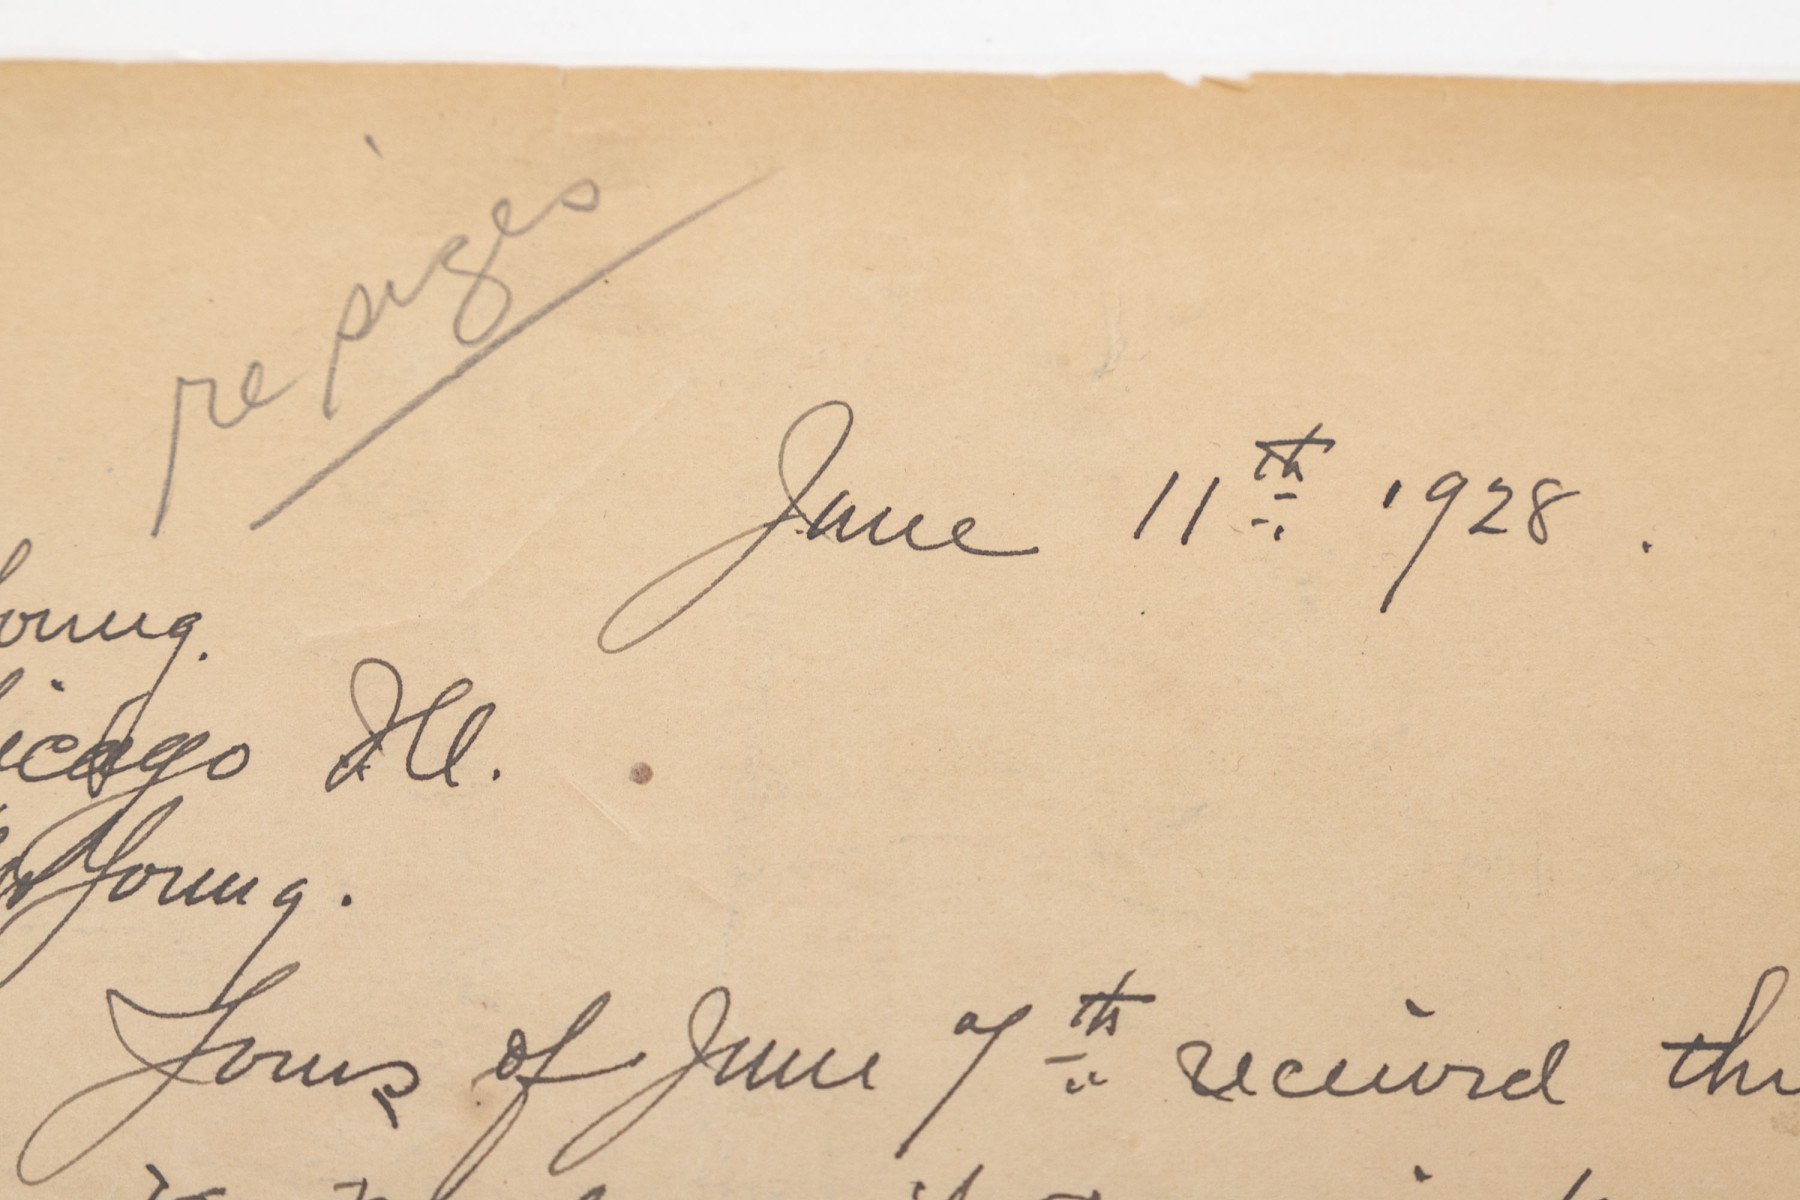 re sizes
June 11th 1928.
Young.
icago Ill.
Young.
Yours of June 7th received